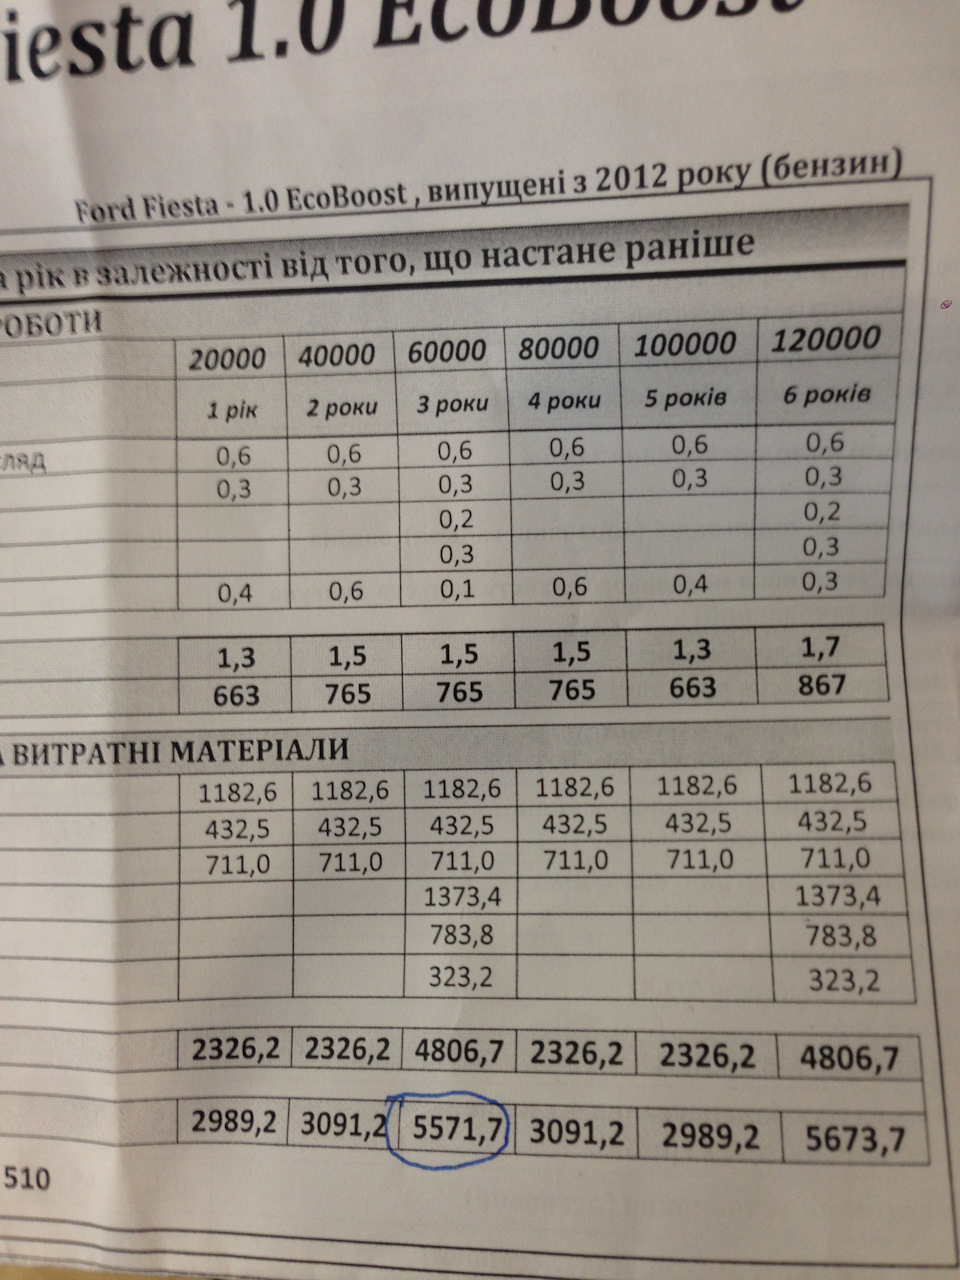 iesta 1.0 EcoBoost
Ford Fiesta - 1.0 EcoBoost , випущені з 2012 року (бензин)
рік в залежності від того, що настане раніше
РОБОТИ
20000 40000 60000 80000 100000 120000
1 рік 2 роки 3 роки 4 роки 5 років 6 років
гляд 0,6 0,6 0,6 0,6 0,6 0,6
0,3 0,3 0,3 0,3 0,3 0,3
0,2 0,2
0,3 0,3
0,4 0,6 0,1 0,6 0,4 0,3
1,3 1,5 1,5 1,5 1,3 1,7
663 765 765 765 663 867
ВИТРАТНІ МАТЕРІАЛИ
1182,6 1182,6 1182,6 1182,6 1182,6 1182,6
432,5 432,5 432,5 432,5 432,5 432,5
711,0 711,0 711,0 711,0 711,0 711,0
1373,4 1373,4
783,8 783,8
323,2 323,2
2326,2 2326,2 4806,7 2326,2 2326,2 4806,7
2989,2 3091,2 5571,7 3091,2 2989,2 5673,7
510